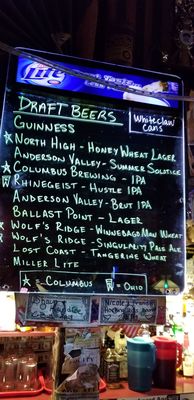 Lite
DRAFT BEERS
WHITECLAW
CANS
GUINNESS
NORTH HIGH - HONEY WHEAT LAGER
ANDERSON VALLEY - SUMMER SOLSTICE
COLUMBUS BREWING - IPA
RHINEGEIST - HUSTLE IPA
ANDERSON VALLEY - BRUT IPA
BALLAST POINT - LAGER
WOLF'S RIDGE - WINNEBAGO MAN WHEAT
WOLF'S RIDGE - SINGULARITY PALE ALE
LOST COAST - TANGERINE WHEAT
MILLER LITE
= COLUMBUS = OHIO